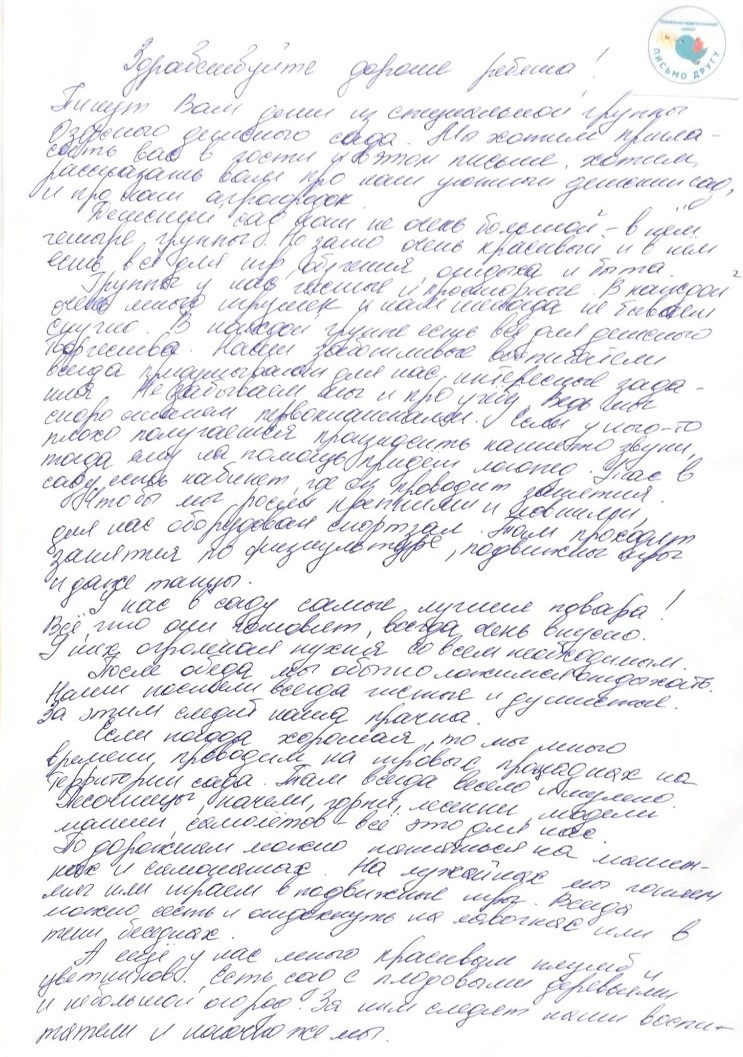 ПИСЬМО ДРУГУ
Здравствуйте дорогие ребята!
Пишут Вам дети из специальной группы
детского сада. Мы хотим пригла-
сить вас в гости и в этом письме хотим
рассказать вам про наш уютный детский сад,
и про наш агрогородок.
Детский сад наш не очень большой – в нём
четыре группы. Но зато очень красивый и в нём
есть всё для игр, обучения, отдыха и быта.
Группы у нас чистые и просторные. В каждой
очень много игрушек и нам никогда не бывает
скучно. В каждой группе есть всё для детского
творчества. Наши заботливые воспитатели
всегда придумывают для нас интересные зада-
ния. Не забываем мы и про учёбу, ведь мы
скоро станем первоклашками. Если у кого-то
плохо получается произносить какие-то звуки,
тогда ему на помощь придёт логопед. У нас в
саду есть кабинет, где он проводит занятия.
Чтобы мы росли крепкими и ловкими,
для нас оборудован спортзал. Там проходят
занятия по физкультуре, подвижные игры
и даже танцы.
У нас в саду самые лучшие повара!
Всё, что они готовят, всегда очень вкусно.
У них огромная кухня со всем необходимым.
После обеда мы обычно ложимся отдыхать.
Наши постели всегда чистые и душистые.
За этим следит наша прачка.
Если погода хорошая, то мы много
времени проводим на игровых площадках на
территории сада. Там всегда весело и шумно.
Песочницы, качели, горки, лесенки, модели
машин, самолётов – всё это для нас.
По дорожкам можно кататься на машин-
ках и самокатах. На лужайках мы гоняем
мяч или играем в подвижные игры. Всегда
можно сесть и отдохнуть на лавочках или в
тени беседках.
А ещё у нас много красивых клумб и
цветников. Есть сад с плодовыми деревьями
и небольшой огород. За ним следят наши воспи-
татели и конечно же мы.